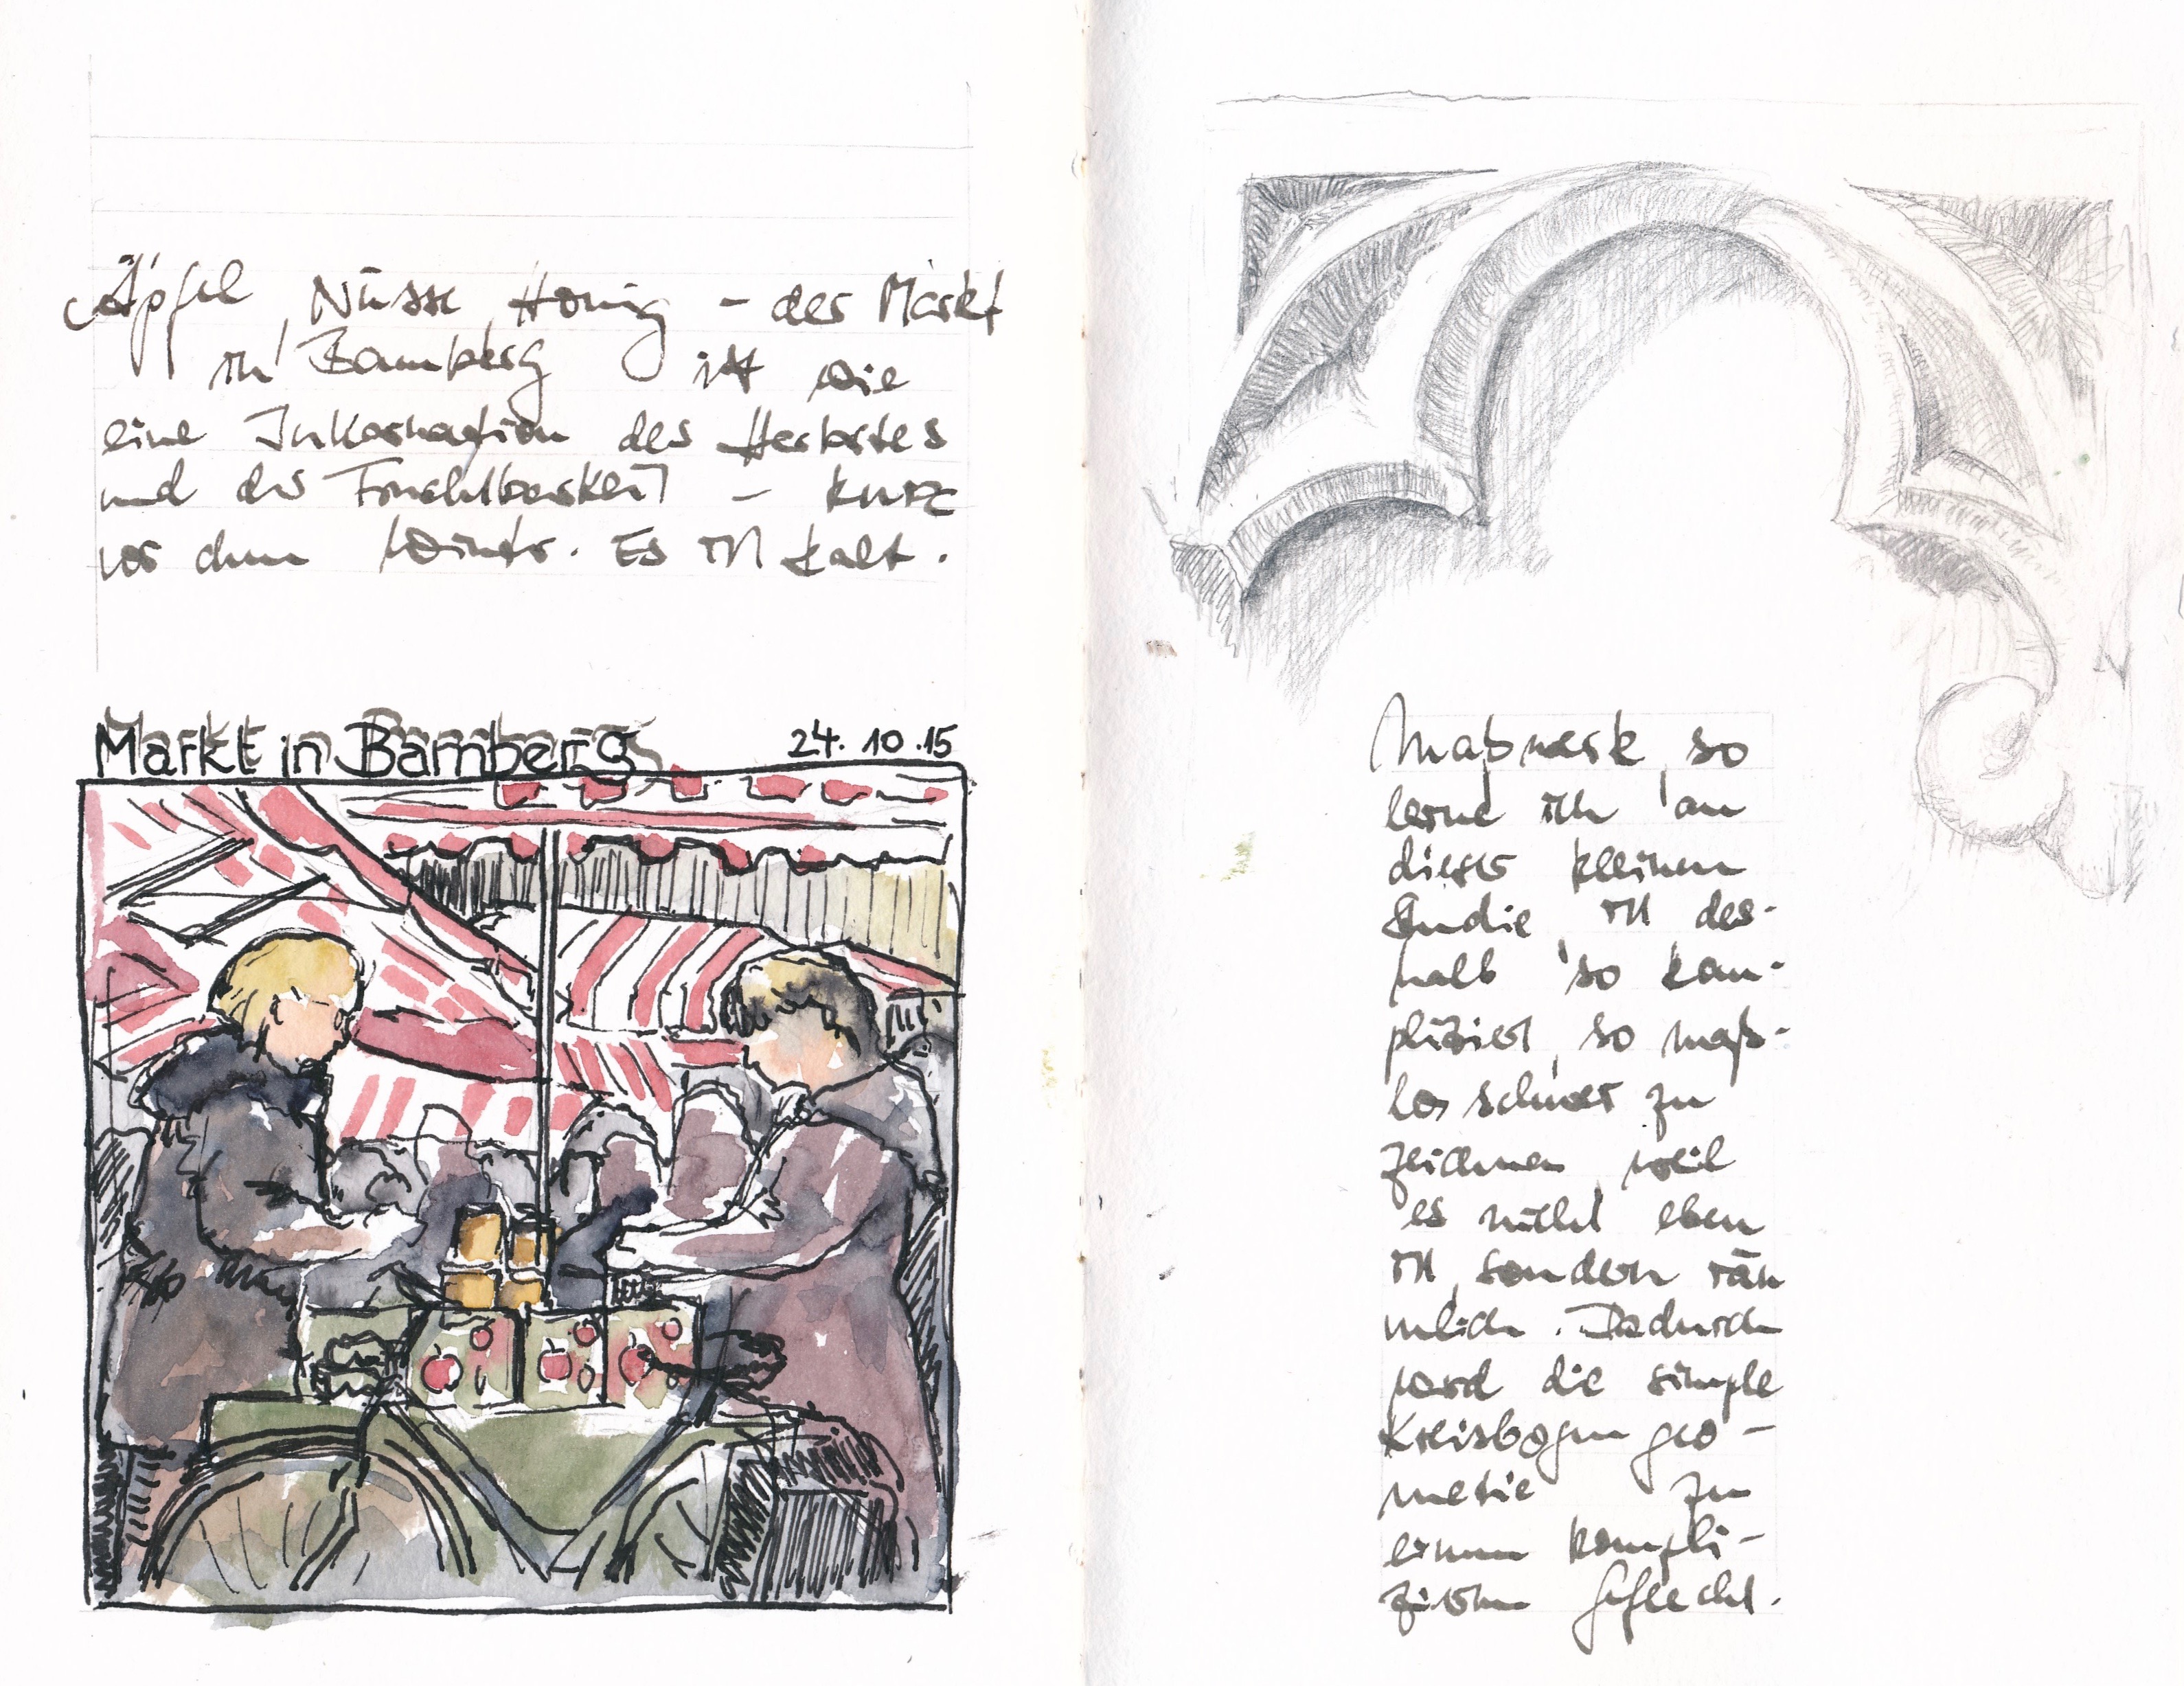 Äpfel, Nüsse, Honig – der Markt
in Bamberg ist wie
eine Inkarnation des Herbstes
und der Fruchtbarkeit – kurz
vor dem Winter. Es ist kalt.
Markt in Bamberg 24.10.15
Maßwerk, so
lerne ich an
dieser kleinen
Studie, ist des-
halb so kom-
pliziert, so maß-
los schwer zu
zeichnen weil
es nicht eben
ist, sondern räu
mlich. Dadurch
wird die simple
Kreisbogen geo-
metrie zu
einem kompli-
zierten Geflecht.